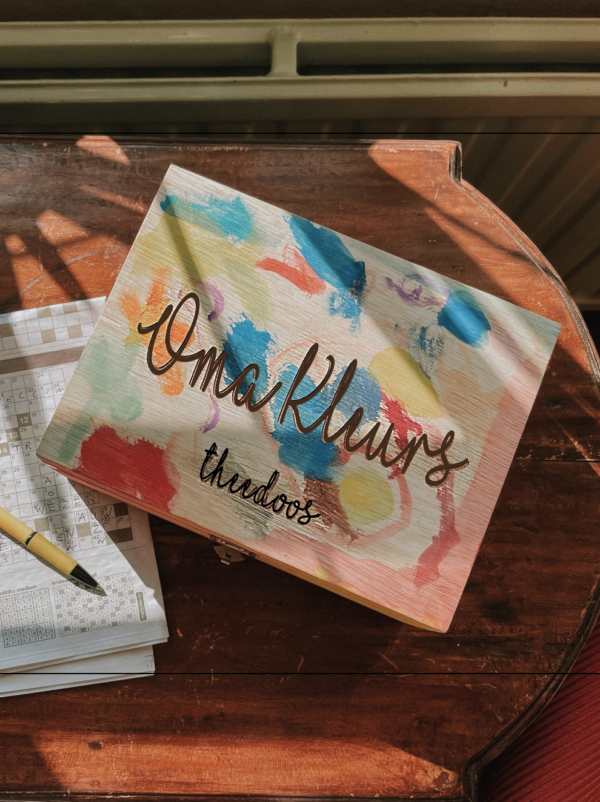 Oma Kleurs
theedoos